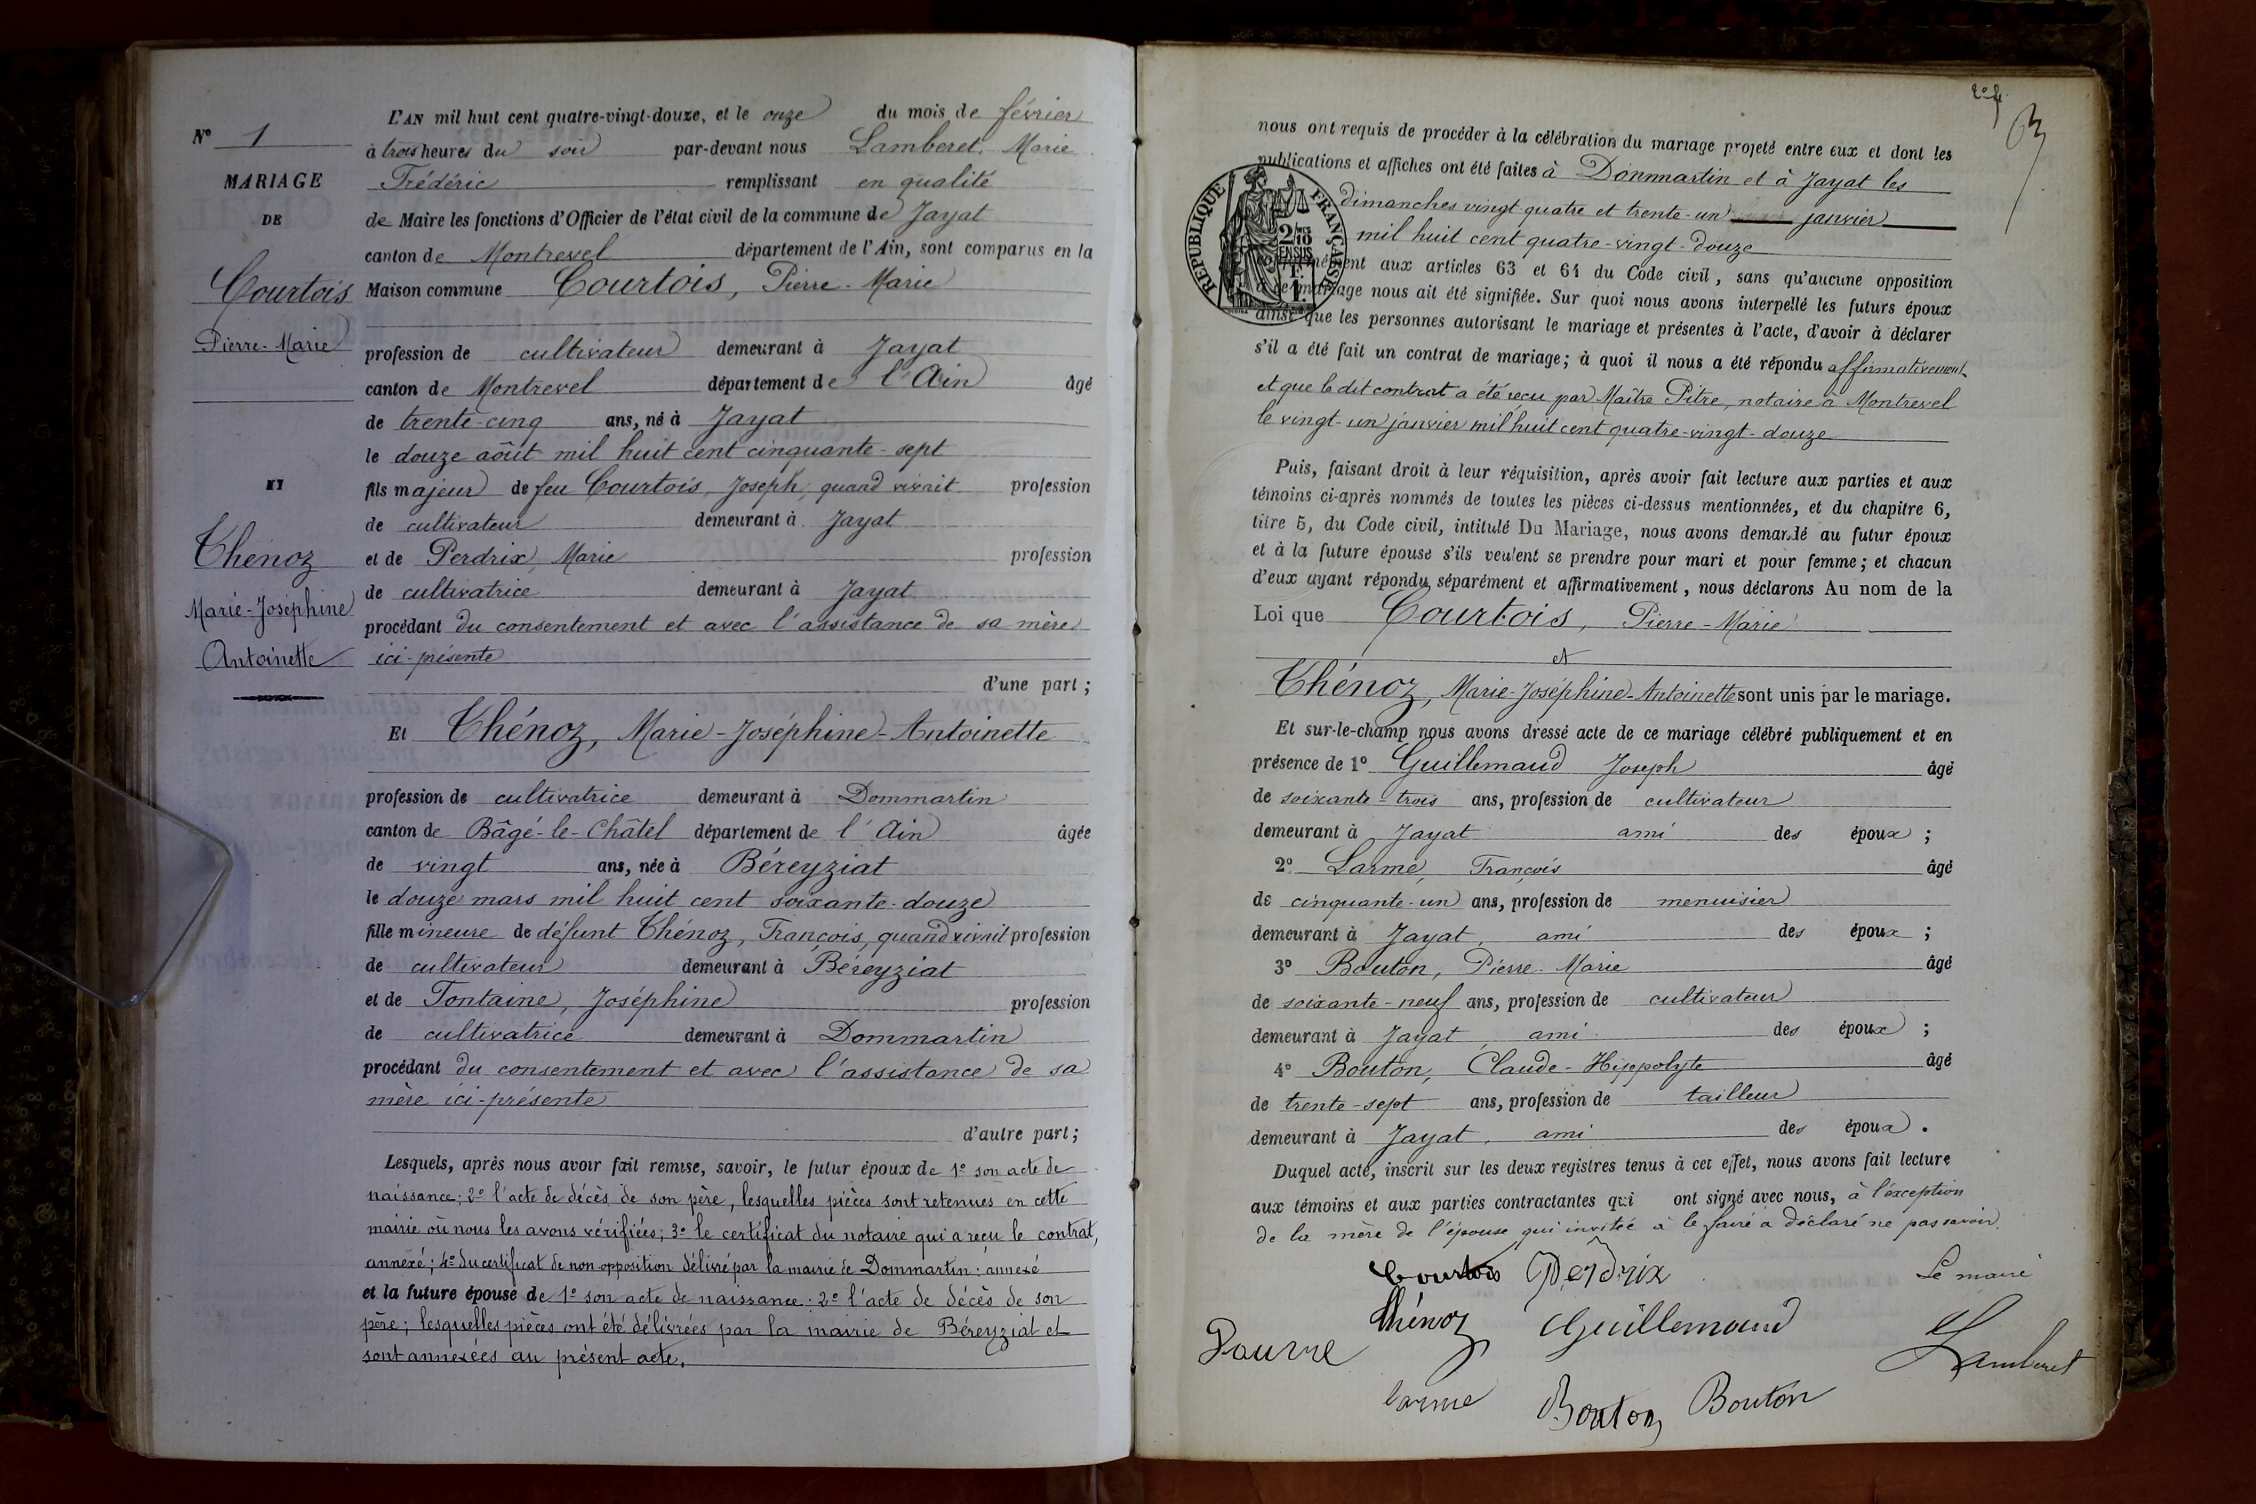 N° 1
MARIAGE
DE
Courtois
Pierre-Marie
ET
Thénoz
Marie-Joséphine
Antoinette
L'AN mil huit cent quatre-vingt-douze, et le onze du mois de février
à trois heures du soir par-devant nous Lamberet, Marie
Frédéric remplissant en qualité
de Maire les fonctions d'Officier de l'état civil de la commune de Jayat
canton de Montrevel département de l'Ain, sont comparus en la
Maison commune Courtois, Pierre-Marie
profession de cultivateur demeurant à Jayat
canton de Montrevel département de l'Ain âgé
de trente-cinq ans, né à Jayat
le douze août mil huit cent cinquante-sept
fils majeur de feu Courtois, Joseph, quand vivait profession
de cultivateur demeurant à Jayat
et de Perdrix, Marie profession
de cultivatrice demeurant à Jayat
procédant du consentement et avec l'assistance de sa mère
ici-présente
d'une part ;
Et Thénoz, Marie-Joséphine-Antoinette
profession de cultivatrice demeurant à Dommartin
canton de Bâgé-le-Châtel département de l'Ain âgée
de vingt ans, née à Béreyziat
le douze mars mil huit cent soixante-douze
fille mineure de défunt Thénoz, François, quand vivait profession
de cultivateur demeurant à Béreyziat
et de Fontaine, Joséphine profession
de cultivatrice demeurant à Dommartin
procédant du consentement et avec l'assistance de sa
mère ici-présente
d'autre part ;
Lesquels, après nous avoir fait remise, savoir, le futur époux de 1° son acte de
naissance ; 2° l'acte de décès de son père, lesquelles pièces sont retenues en cette
mairie où nous les avons vérifiées ; 3° le certificat du notaire qui a reçu le contrat,
annexé ; 4° du certificat de non opposition délivré par la mairie de Dommartin ; annexé
et la future épouse de 1° son acte de naissance ; 2° l'acte de décès de son
père ; lesquelles pièces ont été délivrées par la mairie de Béreyziat et
sont annexées au présent acte.
nous ont requis de procéder à la célébration du mariage projeté entre eux et dont les
publications et affiches ont été faites à Dommartin et à Jayat les
dimanches vingt-quatre et trente-un janvier
mil huit cent quatre-vingt-douze
RÉPUBLIQUE FRANÇAISE
aux articles 63 et 64 du Code civil, sans qu'aucune opposition
à ce mariage nous ait été signifiée. Sur quoi nous avons interpellé les futurs époux
ainsi que les personnes autorisant le mariage et présentes à l'acte, d'avoir à déclarer
s'il a été fait un contrat de mariage ; à quoi il nous a été répondu affirmativement
et que le dit contrat a été reçu par Maître Pitre, notaire à Montrevel
le vingt-un janvier mil huit cent quatre-vingt-douze
Puis, faisant droit à leur réquisition, après avoir fait lecture aux parties et aux
témoins ci-après nommés de toutes les pièces ci-dessus mentionnées, et du chapitre 6,
titre 5, du Code civil, intitulé Du Mariage, nous avons demandé au futur époux
et à la future épouse s'ils veulent se prendre pour mari et pour femme ; et chacun
d'eux ayant répondu séparément et affirmativement, nous déclarons Au nom de la
Loi que Courtois, Pierre-Marie
et
Thénoz, Marie-Joséphine-Antoinette sont unis par le mariage.
Et sur-le-champ nous avons dressé acte de ce mariage célébré publiquement et en
présence de 1° Guillemaud Joseph âgé
de soixante-trois ans, profession de cultivateur
demeurant à Jayat ami des époux ;
2° Larme, François âgé
de cinquante-un ans, profession de menuisier
demeurant à Jayat, ami des époux ;
3° Bouton, Pierre-Marie âgé
de soixante-neuf ans, profession de cultivateur
demeurant à Jayat, ami des époux ;
4° Bouton, Claude-Hippolyte âgé
de trente-sept ans, profession de tailleur
demeurant à Jayat, ami des époux.
Duquel acte, inscrit sur les deux registres tenus à cet effet, nous avons fait lecture
aux témoins et aux parties contractantes qui ont signé avec nous, à l'exception
de la mère de l'épouse qui invitée à le faire a déclaré ne pas savoir.
Courtois Perdrix Le maire
Thénoz Guillemaud Lamberet
larme Bouton Bouton